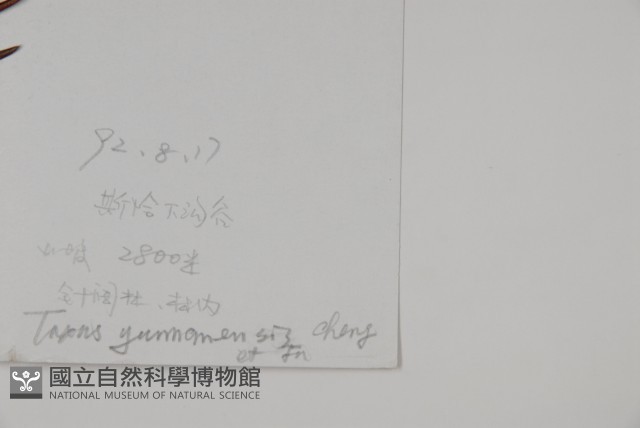 92.8.17
斯恰下沟谷
山坡 2800米
针阔林.林内
Taxus yunnanensis Cheng
et Fu
國立自然科學博物館
NATIONAL MUSEUM OF NATURAL SCIENCE